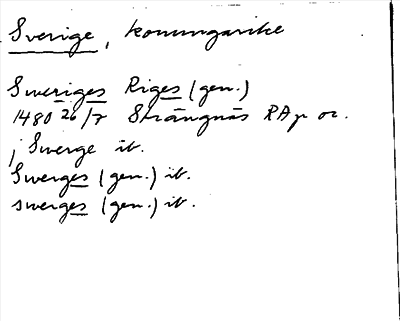 Sverige, konungarike
Sweriges Riges (gen.)
1480 26/7 Strängnäs RAp or.
i Swerge it.
Swerges (gen.) it.
swerges (gen.) it.